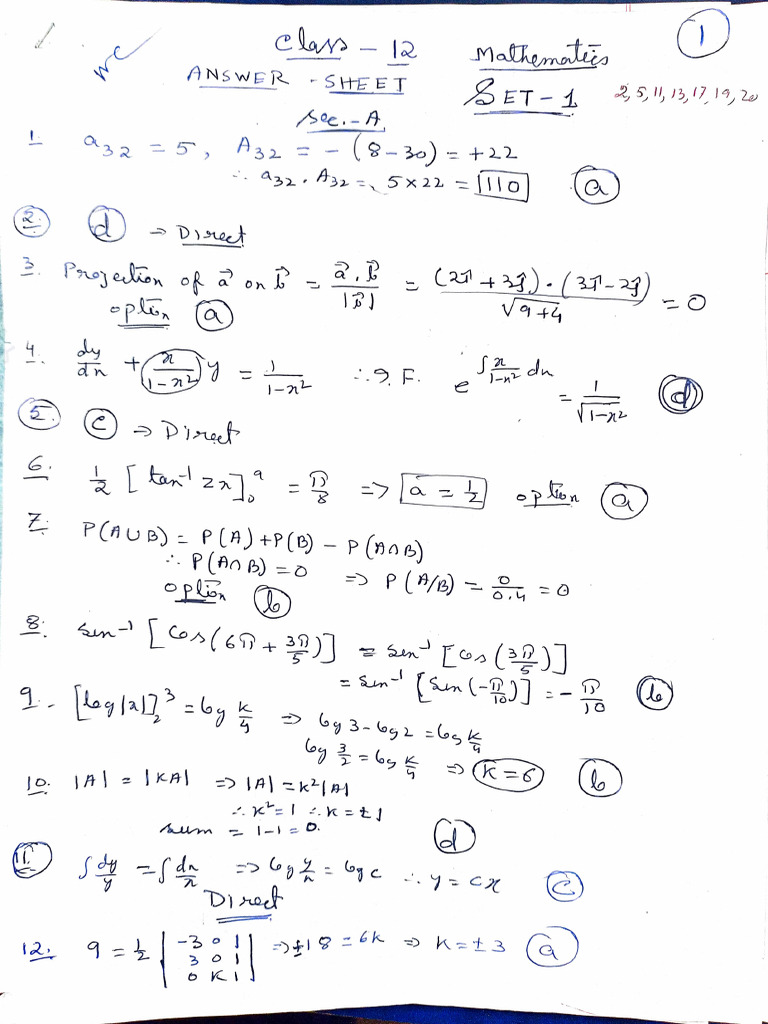 1
Class - 12 Mathematics
ANSWER - SHEET SET - 1 2, 5, 11, 13, 17, 19, 20
Sec. - A
1. a₃₂ = 5, A₃₂ = - (8 - 30) = +22
∴ a₃₂ . A₃₂ = 5 × 22 = 110 (a)
2. (d) ⇒ Direct
3. Projection of a⃗ on b⃗ = a⃗ . b⃗ / |b⃗| = (2î + 3ĵ) . (3î - 2ĵ) / √(9+4) = 0
option (a)
4. dy/dx + (x/(1-x²)) y = 1/(1-x²) ∴ I. F. e^(∫ x/(1-x²) dx) = 1/√(1-x²) (d)
5. (c) ⇒ Direct
6. ½ [tan⁻¹ 2x]₀ᵃ = π/8 ⇒ a = ½ option (a)
7. P(A∪B) = P(A) + P(B) - P(A∩B)
∴ P(A∩B) = 0 ⇒ P(A/B) = 0/0.4 = 0
option (b)
8. sin⁻¹ [cos(6π + 3π/5)] = sin⁻¹ [cos(3π/5)]
= sin⁻¹ [sin(-π/10)] = -π/10 (b)
9. [log|x|]₂³ = log k/4 ⇒ log 3 - log 2 = log k/4
log 3/2 = log k/4 ⇒ K = 6 (b)
10. |A| = |KA| ⇒ |A| = K²|A|
∴ K² = 1 ∴ K = ±1
sum = 1 - 1 = 0. (d)
11. ∫ dy/y = ∫ dx/x ⇒ log y/x = log c ∴ y = cx (c)
Direct
12. 9 = ½ | -3 0 1 | ⇒ ±18 = 6K ⇒ K = ±3 (a)
3 0 1
0 K 1